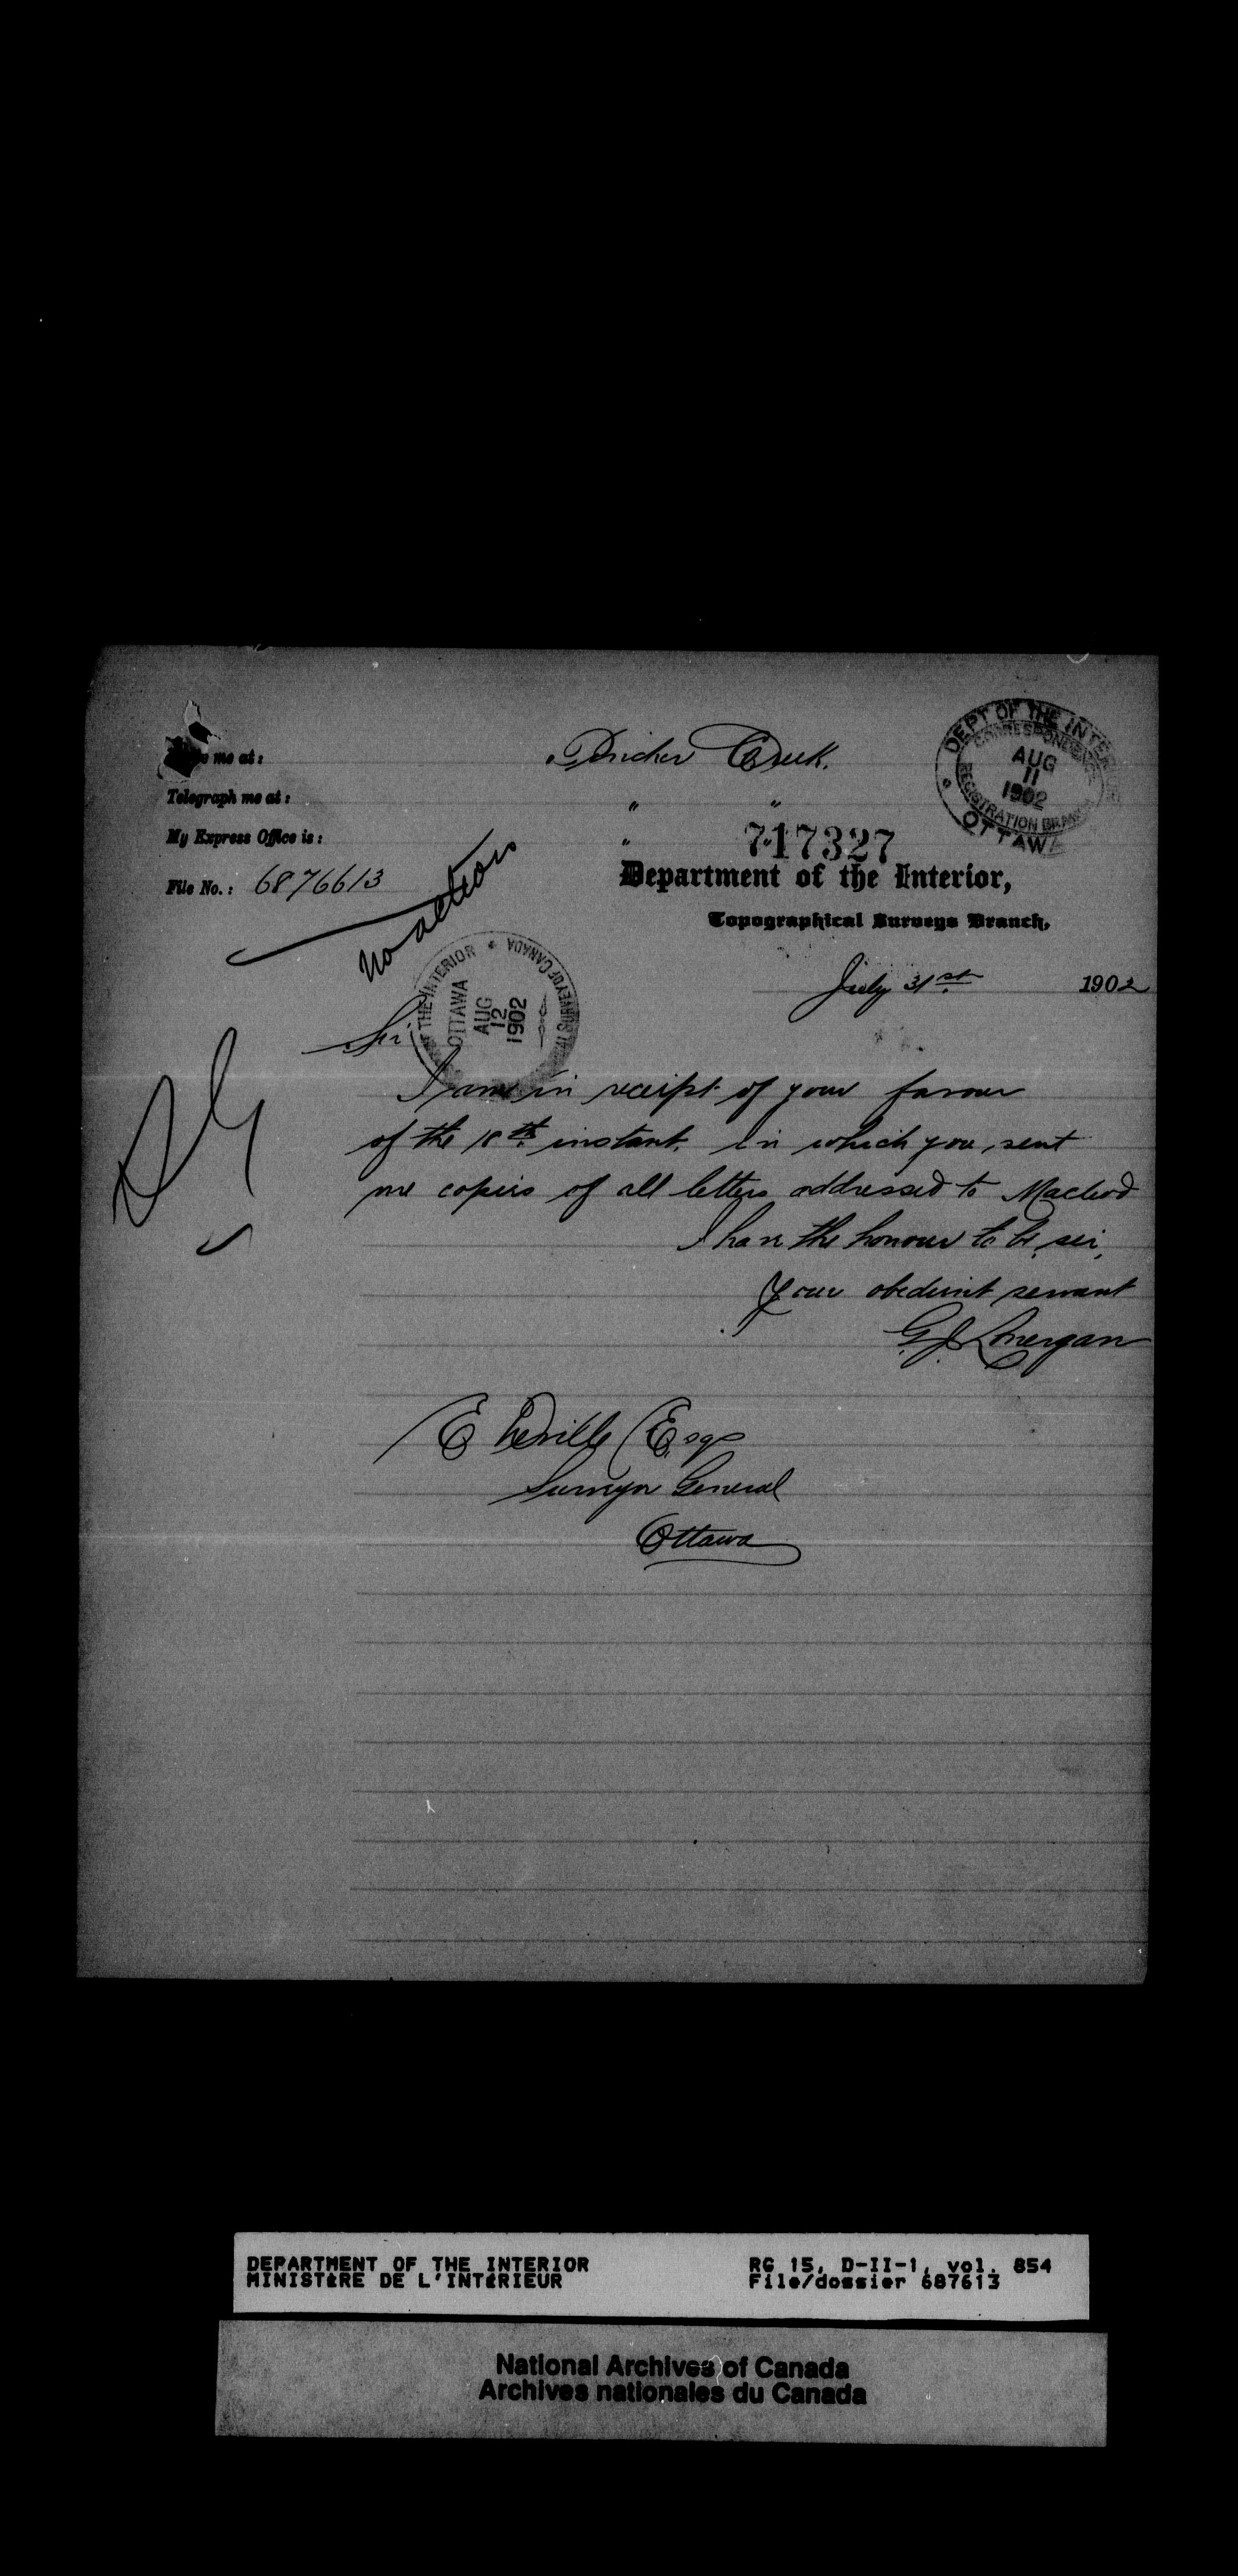 me at: Pincher Creek.
Telegraph me at: " "
My Express Office is: " "
717327
File No.: 6876613
no action
Department of the Interior,
Topographical Surveys Branch,
DEPT OF THE INTERIOR
CORRESPONDENCE
AUG
11
1902
REGISTRATION BRANCH
OTTAWA
July 31st. 1902
THE INTERIOR
OTTAWA
AUG
12
1902
OF CANADA
Sir
I am in receipt of your favour
of the 18th instant. in which you sent
me copies of all letters addressed to Macleod
I have the honour to be, sir,
Your obedient servant
G.J. Lonergan
E Deville Esq
Surveyor General
Ottawa
DEPARTMENT OF THE INTERIOR RG 15, D-II-1, vol. 854
MINISTÈRE DE L'INTÉRIEUR File/dossier 687613
National Archives of Canada
Archives nationales du Canada